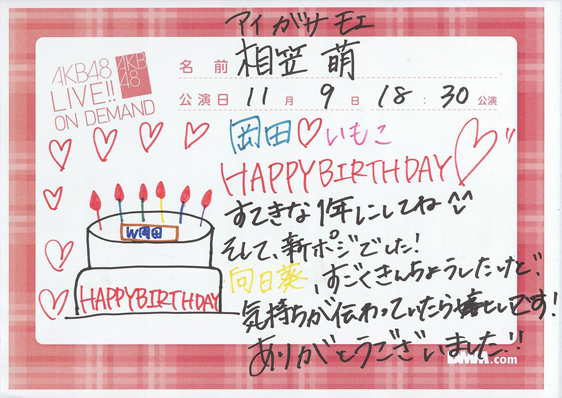 アイガサモエ
AKB48
LIVE!!
ON DEMAND
AKB
48
名前 相笠 萌
公演日 11月 9日 18:30公演
岡田♡いもこ
HAPPYBIRTHDAY♡
すてきな1年にしてね^^
そして、新ポジでした!
向日葵、すごくきんちょうしたけど、
気持ちが伝わっていたら嬉しいです!
ありがとうございました!!
W岡田
HAPPYBIRTHDAY
DMM.com